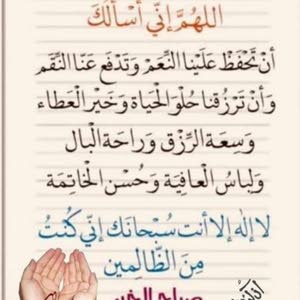 اللهُمَّ إِنّي أَسْأَلُكَ
أنْ تَحْفَظْ عَلَيْنا النِّعَمْ وَتَدْفَعْ عَنّا النِّقَم
وَأنْ تَرْزُقنا حُلْوَ الْحَيَاة وَخَيْرَ الْعَطاء
وَسِعَةَ الرِّزْق وَرَاحَةَ الْبَال
وَلِبَاسُ الْعَافِيَة وَحُسْنَ الْخَاتِمَة
لا إِلٰه إِلا أنت سُبْحانَك إِنّي كُنْتُ
مِنَ الظَّالِمين
صباح الخير